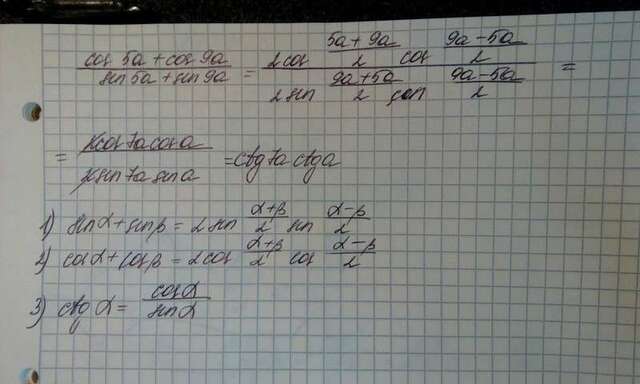 (cos 5a + cos 9a)/(sin 5a + sin 9a) = (2 cos (5a + 9a)/2 cos (9a - 5a)/2)/(2 sin (9a + 5a)/2 sin (9a - 5a)/2) =
= (2 cos 7a cos a)/(2 sin 7a sin a) = ctg 7a ctg a
1) sin α + sin β = 2 sin (α + β)/2 sin (α - β)/2
2) cos α + cos β = 2 cos (α + β)/2 cos (α - β)/2
3) ctg α = cos α/sin α